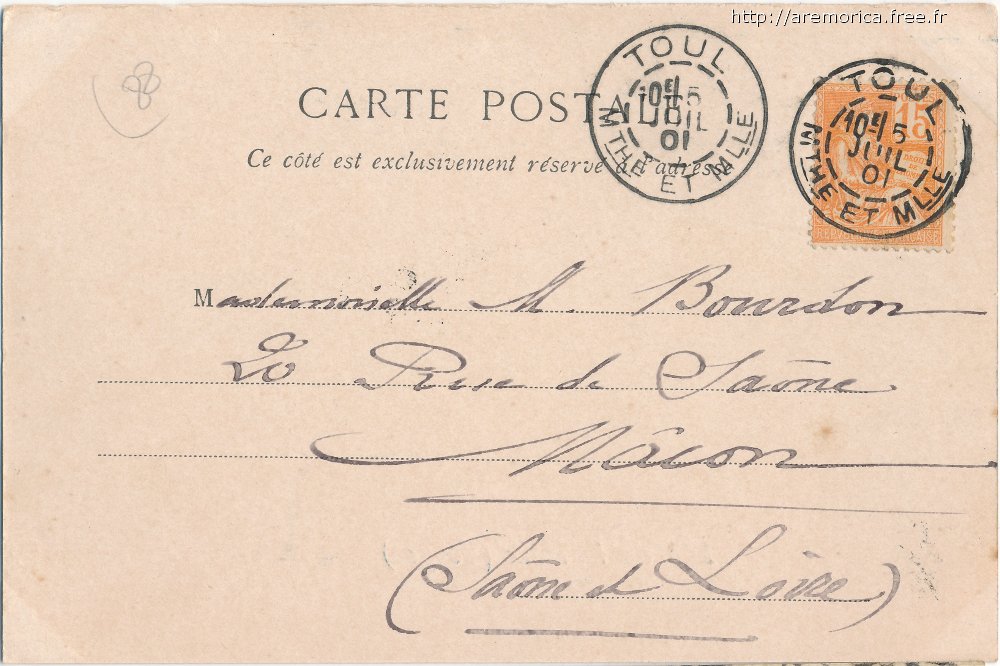 http://aremorica.free.fr
TOUL
10E 15
JUIL
01
MTHE ET MLLE
TOUL
10E 15
JUIL
01
MTHE ET MLLE
15
88
CARTE POSTALE
Ce côté est exclusivement réservé à l'adresse
Mademoiselle M. Bourdon
20 Rue de Saône
Mâcon
(Saône et Loire)